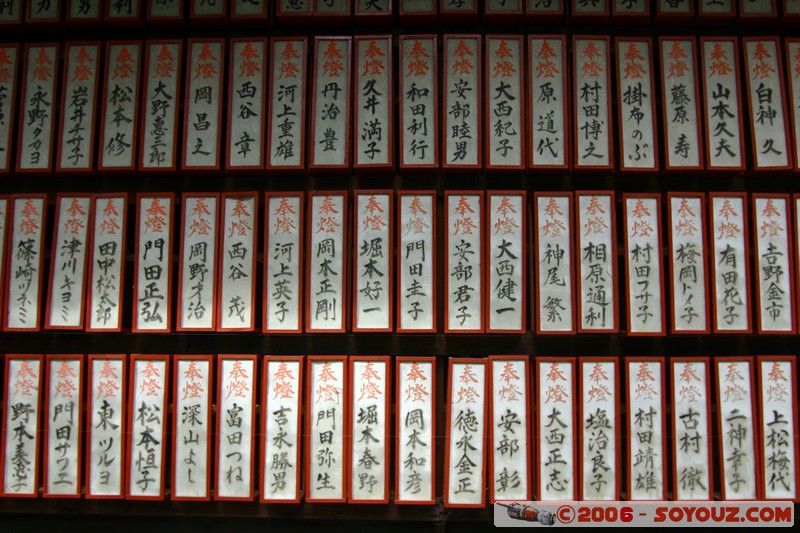 奉燈 永野タカヨ
奉燈 岩井チサ子
奉燈 松本修
奉燈 大野恵三郎
奉燈 岡昌之
奉燈 西谷章
奉燈 河上重雄
奉燈 丹治豊
奉燈 久井満子
奉燈 和田利行
奉燈 安部睦男
奉燈 大西紀子
奉燈 原道代
奉燈 村田博之
奉燈 掛布のぶ
奉燈 藤原寿
奉燈 山本久夫
奉燈 白神久
奉燈 篠崎ツネミ
奉燈 津川キヨミ
奉燈 田中松太郎
奉燈 門田正弘
奉燈 岡野才治
奉燈 西谷茂
奉燈 河上英子
奉燈 岡本正剛
奉燈 堀本好一
奉燈 門田圭子
奉燈 安部君子
奉燈 大西健一
奉燈 神尾繁
奉燈 相原通利
奉燈 村田フサ子
奉燈 梅岡トメ子
奉燈 有田花子
奉燈 吉野金市
奉燈 門田サワエ
奉燈 東ツルヨ
奉燈 松本恒子
奉燈 深山よし
奉燈 富田つね
奉燈 吉永勝男
奉燈 門田弥生
奉燈 堀本春野
奉燈 岡本和彦
奉燈 徳永金正
奉燈 安部彰
奉燈 大西正志
奉燈 塩治良子
奉燈 村田靖雄
奉燈 古村徹
奉燈 二神幸子
奉燈 上松梅代
©2006 - SOYOUZ.COM